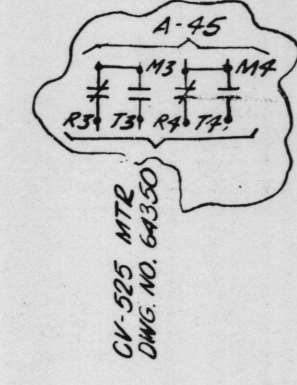 A-45
M3 M4
R3 T3 R4 T4
CV-525 MTR
DWG. NO. 64350